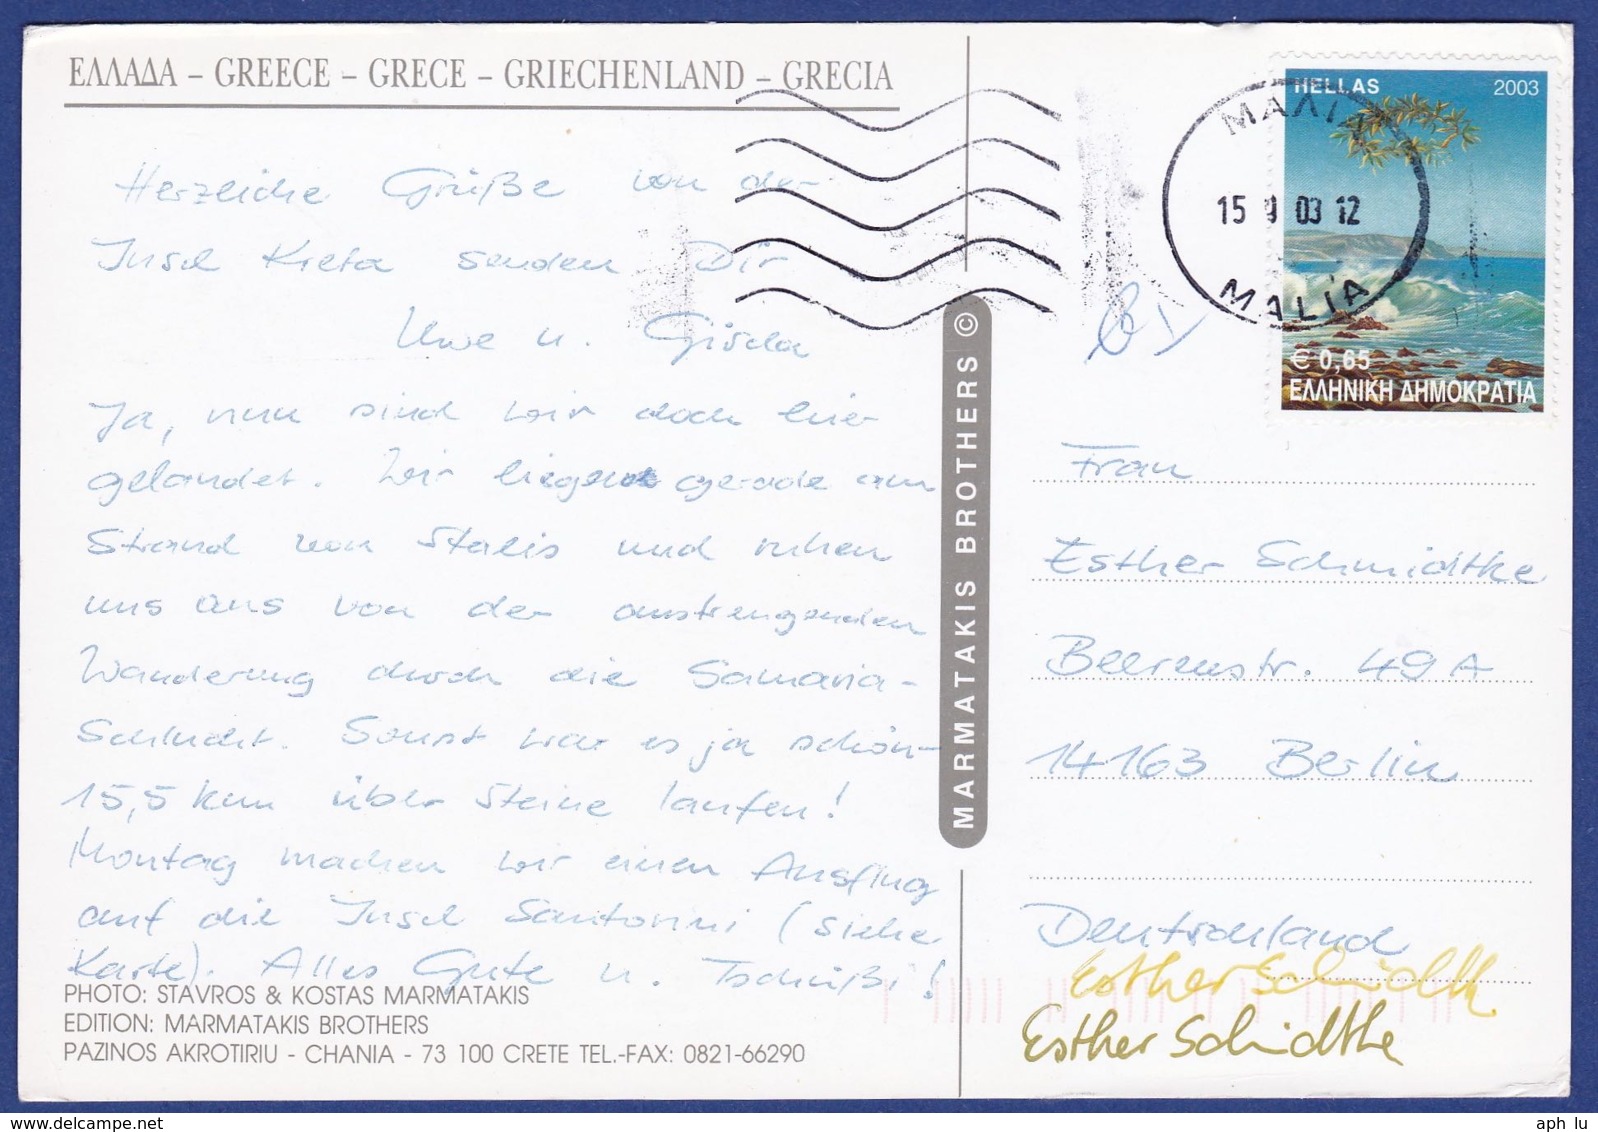 ΕΛΛΑΔΑ – GREECE – GRECE – GRIECHENLAND – GRECIA
HELLAS 2003
ΜΑΛΙΑ
15 9 03 12
MALIA
€ 0,65
ΕΛΛΗΝΙΚΗ ΔΗΜΟΚΡΑΤΙΑ
Herzliche Grüße von der
Insel Kreta senden Dir
Uwe u. Gisela
Ja, nun sind wir doch hier
gelandet. Wir liegen gerade am
Strand von Stalis und ruhen
uns aus von der anstrengenden
Wanderung durch die Samaria-
Schlucht. Sonst war es ja schön
15,5 km über Steine laufen!
Montag machen wir einen Ausflug
auf die Insel Santorini (siehe
Karte). Alles Gute u. Tschüßi!
PHOTO: STAVROS & KOSTAS MARMATAKIS
EDITION: MARMATAKIS BROTHERS
PAZINOS AKROTIRIU - CHANIA - 73 100 CRETE TEL.-FAX: 0821-66290
MARMATAKIS BROTHERS ©
Frau
Esther Schmidtke
Beerenstr. 49A
14163 Berlin
Deutschland
Esther Schmidtke
Esther Schmidtke
aph lu
www.delcampe.net